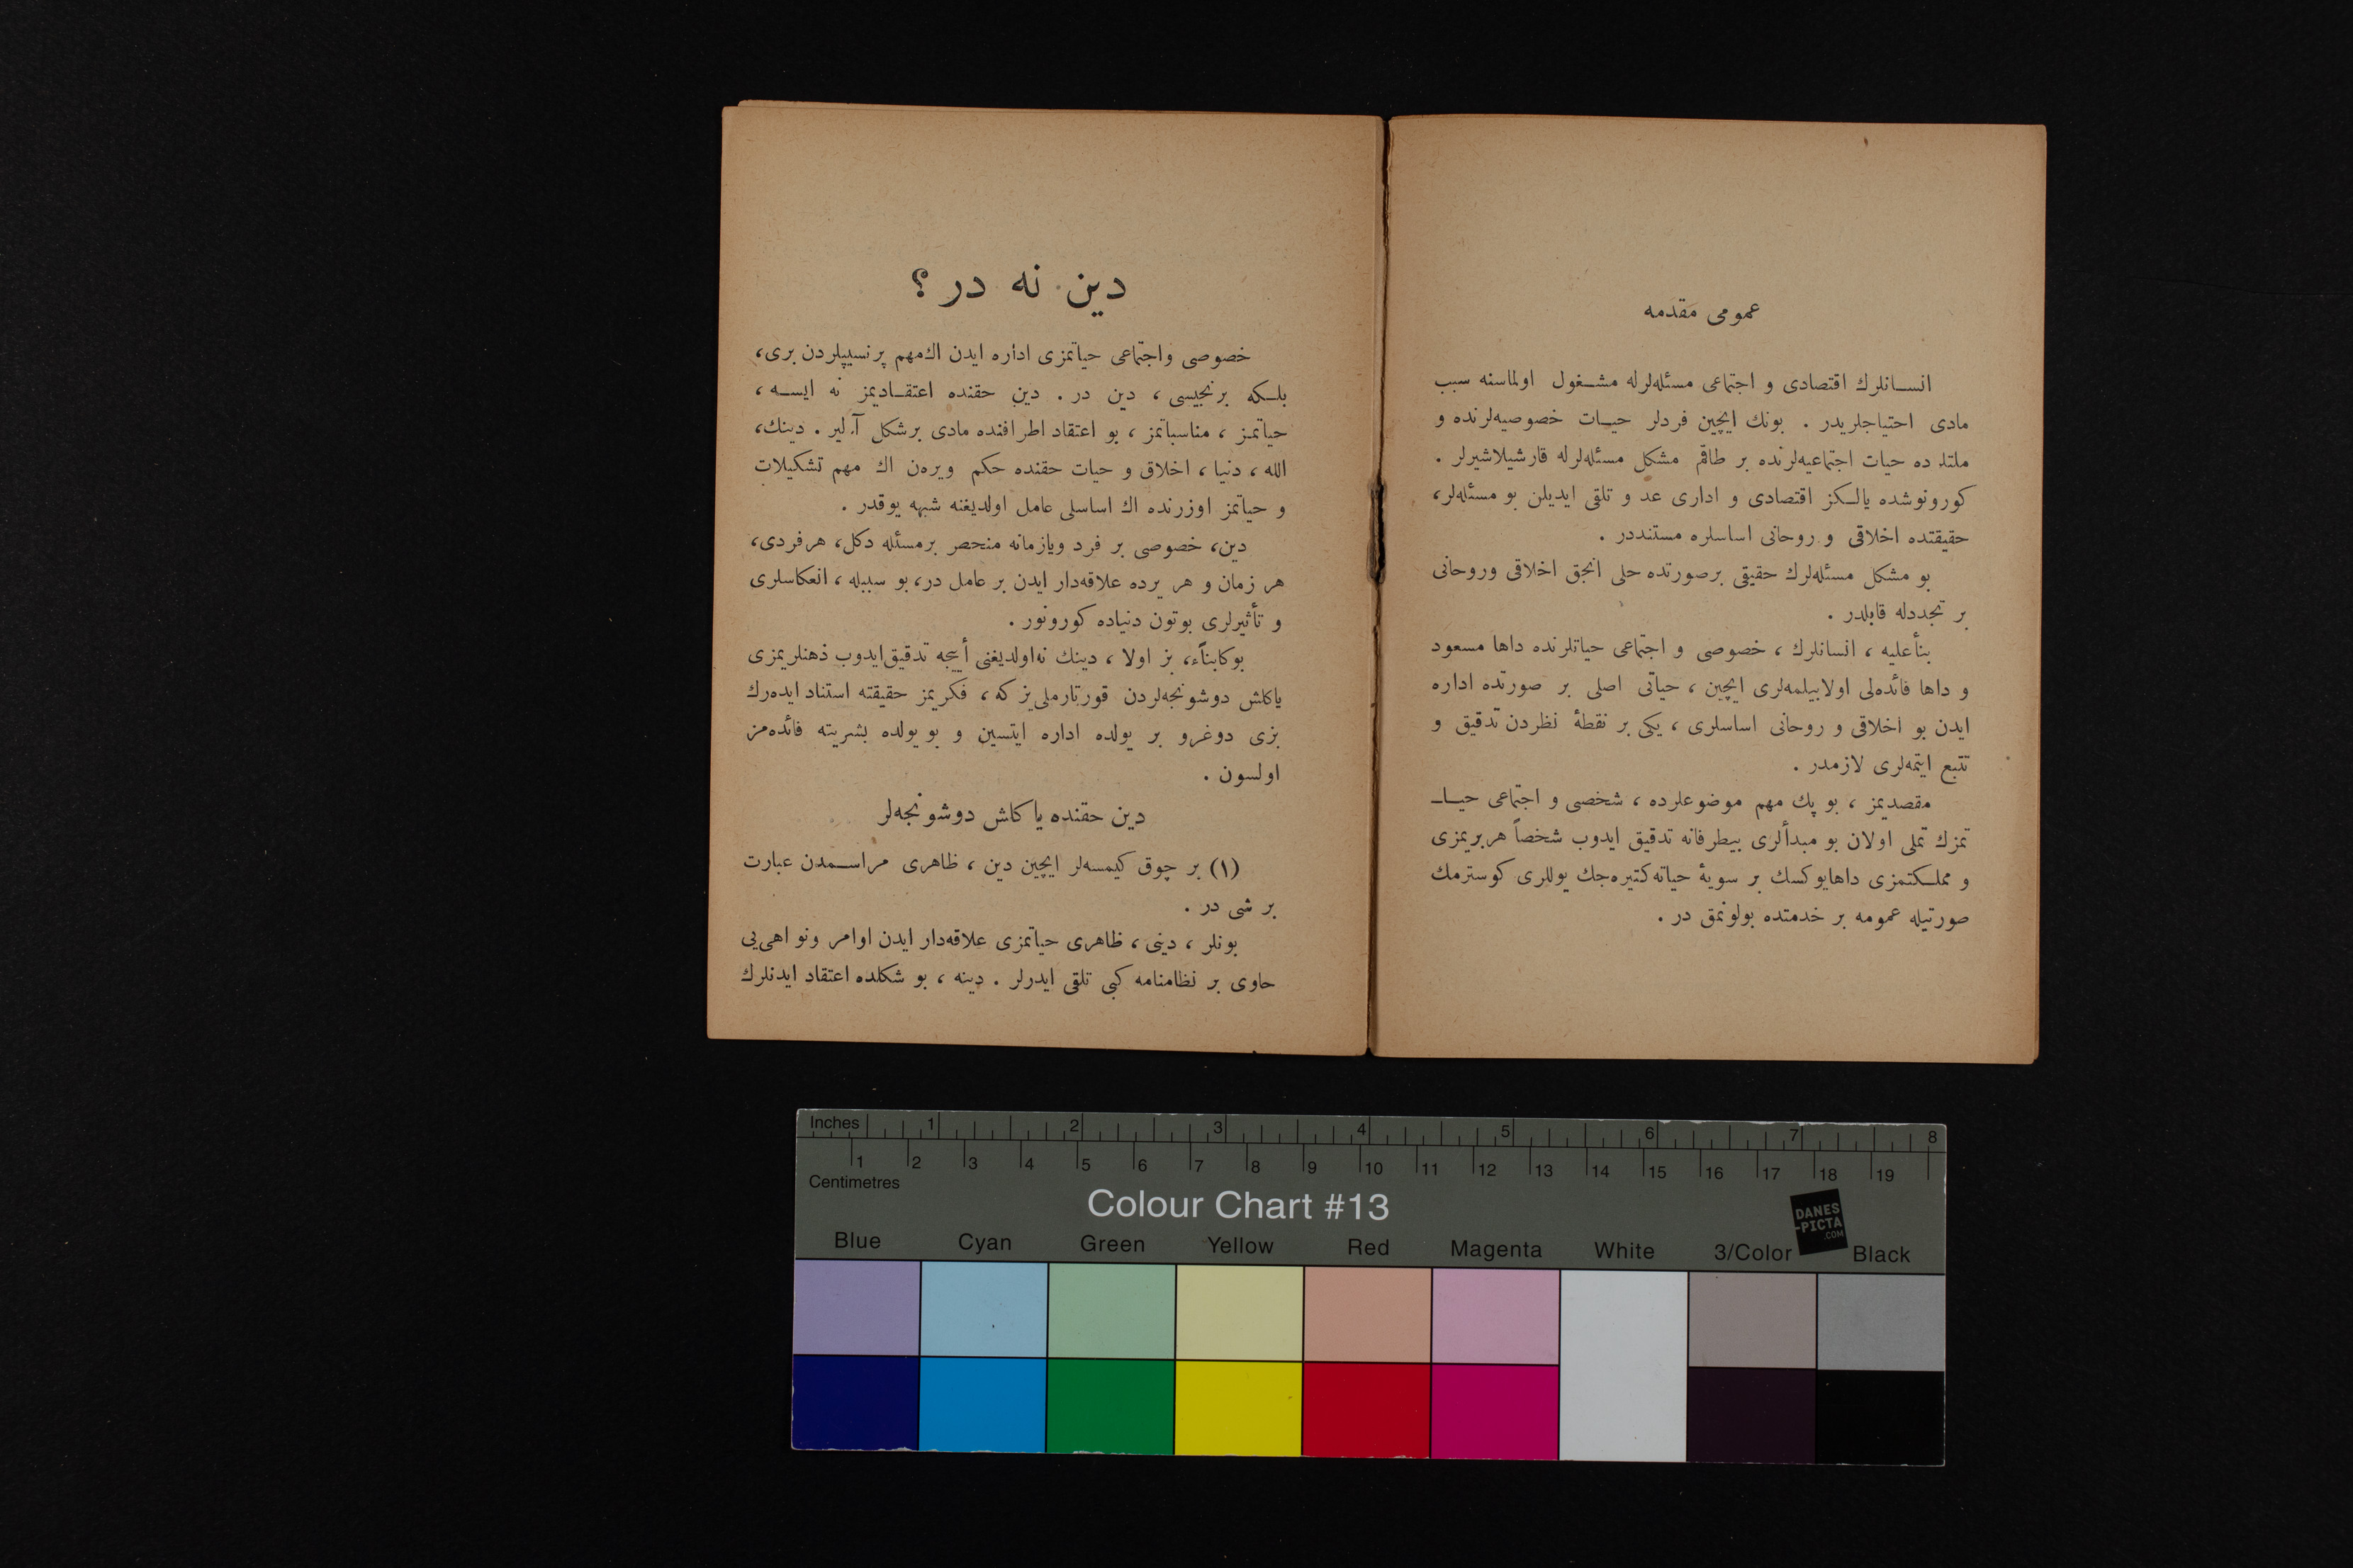 عمومی مقدمه
انسانلرك اقتصادی و اجتماعی مسئله‌لرله مشغول اولماسنه سبب
مادی احتیاجلریدر . بونك ایچین فردلر حیات خصوصیه‌لرنده و
ملتلر ده حیات اجتماعیه‌لرنده بر طاقم مشكل مسئله‌لرله قارشیلاشیرلر .
كورونوشده یالكز اقتصادی و اداری عد و تلقی ایدیلن بو مسئله‌لر،
حقیقتده اخلاقی و روحانی اساسلره مستنددر .
بو مشكل مسئله‌لرك حقیقی برصورتده حلی انجق اخلاقی وروحانی
بر تجددله قابلدر .
بنأعلیه ، انسانلرك ، خصوصی و اجتماعی حیاتلرنده داها مسعود
و داها فائده‌لی اولابیلمه‌لری ایچین ، حیاتی اصلی بر صورتده اداره
ایدن بو اخلاقی و روحانی اساسلری ، یكی بر نقطۀ نظردن تدقیق و
تتبع ایتمه‌لری لازمدر .
مقصدیمز ، بو پك مهم موضوعلرده ، شخصی و اجتماعی حیا‌ـ
تمزك تملی اولان بو مبدألری بیطرفانه تدقیق ایدوب شخصاً هربریمزی
و مملكتمزی داهایوكسك بر سویۀ حیاته كتیره‌جك یوللری كوسترمك
صورتیله عمومه بر خدمتده بولونمق در .
دین نه در ؟
خصوصی واجتماعی حیاتمزی اداره ایدن اك‌مهم پرنسیپلردن بری،
بلكه برنجیسی ، دین در . دین حقنده اعتقادیمز نه ایسه ،
حیاتمز ، مناسباتمز ، بو اعتقاد اطرافنده مادی برشكل آلیر . دینك،
الله ، دنیا ، اخلاق و حیات حقنده حكم ویره‌ن اك مهم تشكیلات
و حیاتمز اوزرنده اك اساسلی عامل اولدیغنه شبهه یوقدر .
دین، خصوصی بر فرد ویازمانه منحصر برمسئله دكل، هرفردی،
هر زمان و هر یرده علاقه‌دار ایدن بر عامل در، بو سببله ، انعكاسلری
و تأثیرلری بوتون دنیاده كورونور .
بوكابنآء، بز اولا ، دینك نه‌اولدیغنی أییجه تدقیق‌ایدوب ذهنلریمزی
یاكلش دوشونجه‌لردن قورتارملی‌یز كه ، فكریمز حقیقته استناد ایده‌رك
بزی دوغرو بر یولده اداره ایتسین و بو یولده بشریته فائده‌مز
اولسون .
دین حقنده یاكلش دوشونجه‌لر
(۱) بر چوق كیمسه‌لر ایچین دین ، ظاهری مراسمدن عبارت
بر شی در .
بونلر ، دینی ، ظاهری حیاتمزی علاقه‌دار ایدن اوامر ونواهی‌یی
حاوی بر نظامنامه كبی تلقی ایدرلر . دینه ، بو شكلده اعتقاد ایدنلرك
Inches 1 2 3 4 5 6 7 8
1 2 3 4 5 6 7 8 9 10 11 12 13 14 15 16 17 18 19
Centimetres
Colour Chart #13
DANES
-PICTA
.COM
Blue Cyan Green Yellow Red Magenta White 3/Color Black